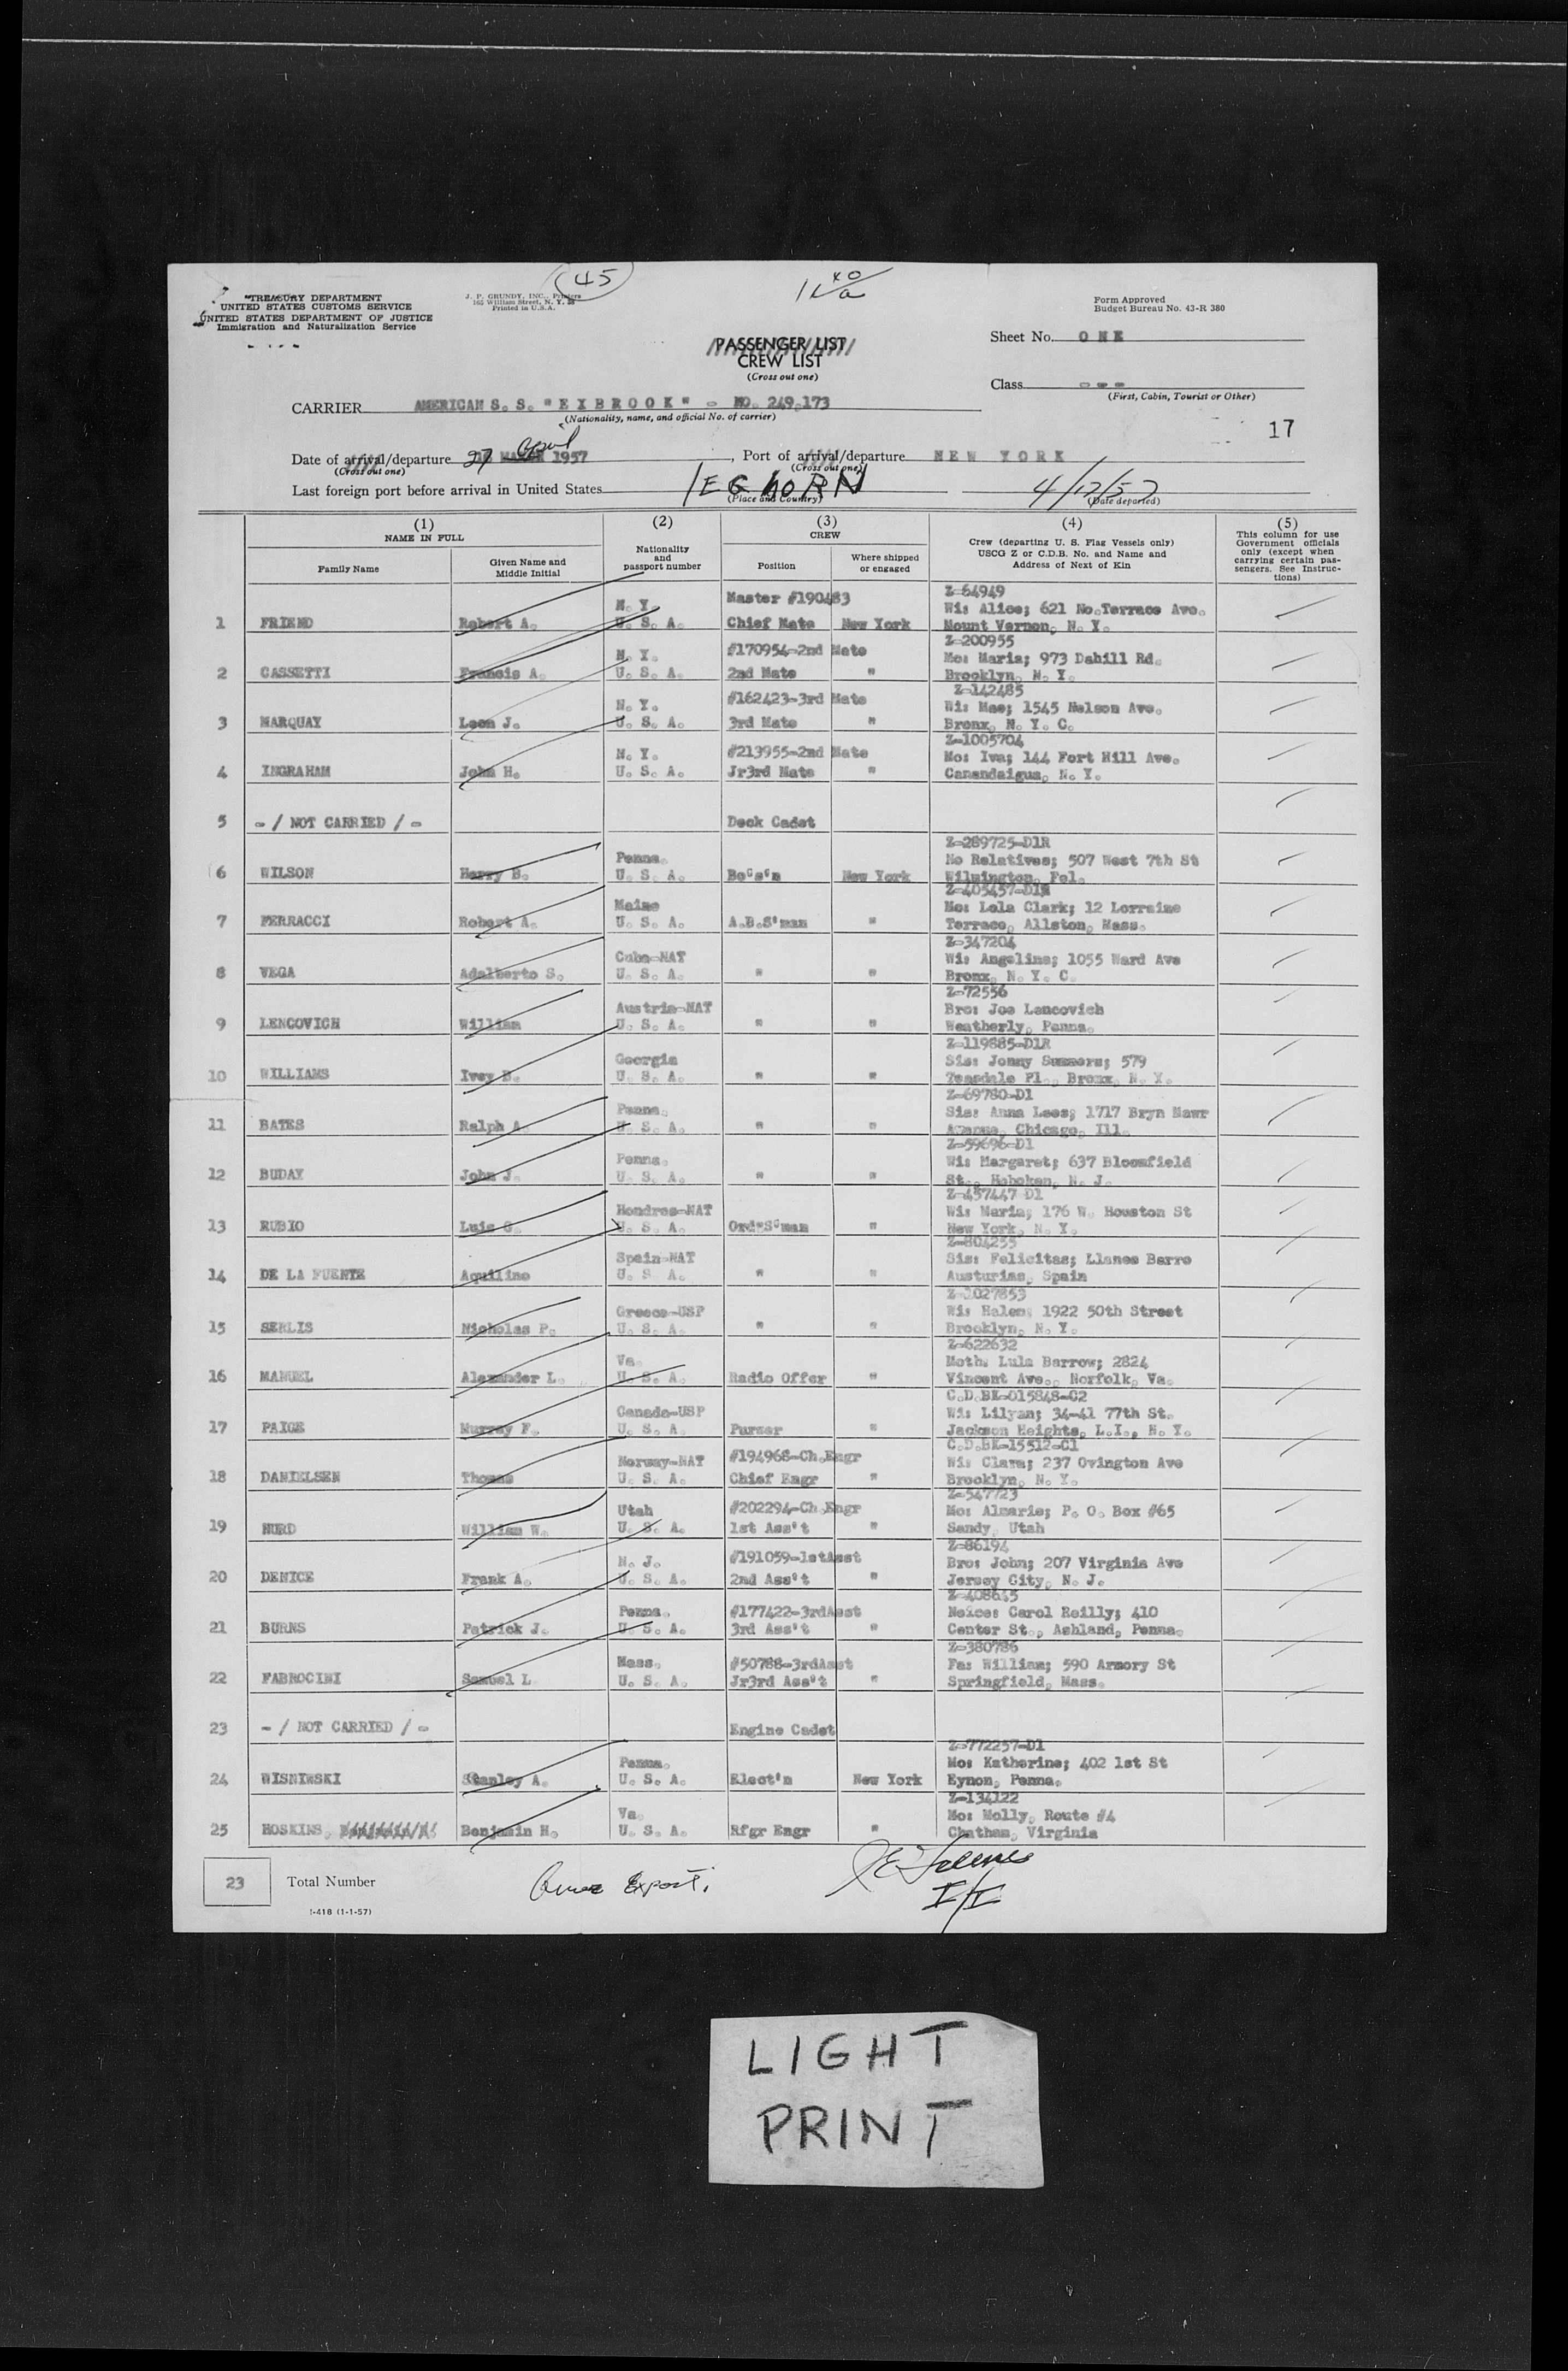 45
TREASURY DEPARTMENT
UNITED STATES CUSTOMS SERVICE
UNITED STATES DEPARTMENT OF JUSTICE
Immigration and Naturalization Service
J. P. GRUNDY, INC., Printers
165 William Street, N. Y. 38
Printed in U.S.A.
Form Approved
Budget Bureau No. 43-R 380
Sheet No. ONE
PASSENGER LIST
CREW LIST
(Cross out one)
Class - - -
(First, Cabin, Tourist or Other)
CARRIER AMERICAN S. S. "EXBROOK" - NO. 249,173
(Nationality, name, and official No. of carrier)
17
Date of arrival/departure 27 April 1957, Port of arrival/departure NEW YORK
(Cross out one) (Cross out one)
Last foreign port before arrival in United States LEGHORN 4/12/57
(Place and Country) (Date departed)
(1) NAME IN FULL
Family Name
Given Name and Middle Initial
(2)
Nationality and passport number
(3) CREW
Position
Where shipped or engaged
(4)
Crew (departing U. S. Flag Vessels only)
USCG Z or C.D.B. No. and Name and
Address of Next of Kin
(5)
This column for use
Government officials
only (except when
carrying certain pas-
sengers. See Instruc-
tions)
N. Y. Master #190483 Z-64949
Wi: Alice; 621 No. Terrace Ave.
1 FRIEND Robert A. U. S. A. Chief Mate New York Mount Vernon, N. Y.
N. Y. #170954-2nd Mate Z-200955
Mo: Maria; 973 Dahill Rd.
2 CASSETTI Francis A. U. S. A. 2nd Mate " Brooklyn, N. Y.
N. Y. #162423-3rd Mate Z-142485
Wi: Mae; 1545 Nelson Ave.
3 MARQUAY Leon J. U. S. A. 3rd Mate " Bronx, N. Y. C.
N. Y. #213955-2nd Mate Z-1005704
Mo: Iva; 144 Fort Hill Ave.
4 INGRAHAM John H. U. S. A. Jr3rd Mate " Canandaigua, N. Y.
5 - / NOT CARRIED / - Deck Cadet
Penna. Z-289725-D1R
No Relatives; 507 West 7th St
6 WILSON Harry B. U. S. A. Bo's'n New York Wilmington, Fel.
Maine Z-405457-D1R
Mo: Lola Clark; 12 Lorraine
7 FERRACCI Robert A. U. S. A. A.B.S'man " Terrace, Allston, Mass.
Cuba-NAT Z-347204
Wi: Angelina; 1055 Ward Ave
8 VEGA Adalberto S. U. S. A. " " Bronx, N. Y. C.
Austria-NAT Z-72556
Bro: Joe Lencovich
9 LENCOVICH William U. S. A. " " Weatherly, Penna.
Georgia Z-119885-D1R
Sis: Jonny Summers; 579
10 WILLIAMS Ivey B. U. S. A. " " Teasdale Pl., Bronx, N. Y.
Penna. Z-69780-D1
Sis: Anna Lees; 1717 Bryn Mawr
11 BATES Ralph A. U. S. A. " " Avenue, Chicago, Ill.
Penna. Z-59696-D1
Wi: Margaret; 637 Bloomfield
12 BUDAY John J. U. S. A. " " St., Hoboken, N. J.
Hondros-NAT Z-457447 D1
Wi: Maria; 176 W. Houston St
13 RUBIO Luis G. U. S. A. Ord"S'man " New York, N. Y.
Spain-NAT Z-804255
Sis: Felicitas; Llanes Barro
14 DE LA FUENTE Aquilino U. S. A. " " Austurias, Spain
Greece-USP Z-1027853
Wi: Helen; 1922 50th Street
15 SERLIS Nicholas P. U. S. A. " " Brooklyn, N. Y.
Va. Z-622632
Moth. Lula Barrow; 2824
16 MANUEL Alexander L. U. S. A. Radio Offcr " Vincent Ave., Norfolk, Va.
Canada-USP C.D.BK-015848-C2
Wi: Lilyan; 34-41 77th St.
17 PAIGE Murray F. U. S. A. Purser " Jackson Heights, L.I., N. Y.
Norway-NAT #194968-Ch.Engr C.D.BK-15512-C1
Wi: Clara; 237 Ovington Ave
18 DANIELSEN Thomas U. S. A. Chief Engr " Brooklyn, N. Y.
Utah #202294-Ch.Engr Z-547723
Mo: Almarie; P. O. Box #65
19 HURD William W. U. S. A. 1st Ass't " Sandy, Utah
N. J. #191059-1stAsst Z-86194
Bro: John; 207 Virginia Ave
20 DENICE Frank A. U. S. A. 2nd Ass't " Jersey City, N. J.
Penna. #177422-3rdAsst Z-408645
Neice: Carol Reilly; 410
21 BURNS Patrick J. U. S. A. 3rd Ass't " Center St., Ashland, Penna.
Mass. #50788-3rdAsst Z-380786
Fa: William; 590 Armory St
22 FABROCINI Samuel L U. S. A. Jr3rd Ass't " Springfield, Mass.
23 - / NOT CARRIED / - Engine Cadet
Penna. Z-772257-D1
Mo: Katherine; 402 1st St
24 WISNIWSKI Stanley A. U. S. A. Elect'n New York Eynon, Penna.
Va. Z-134122
Mo: Molly, Route #4
25 HOSKINS, Benjamin H. U. S. A. Rfgr Engr " Chatham, Virginia
23 Total Number
I-418 (1-1-57)
Export.
I/I
LIGHT
PRINT